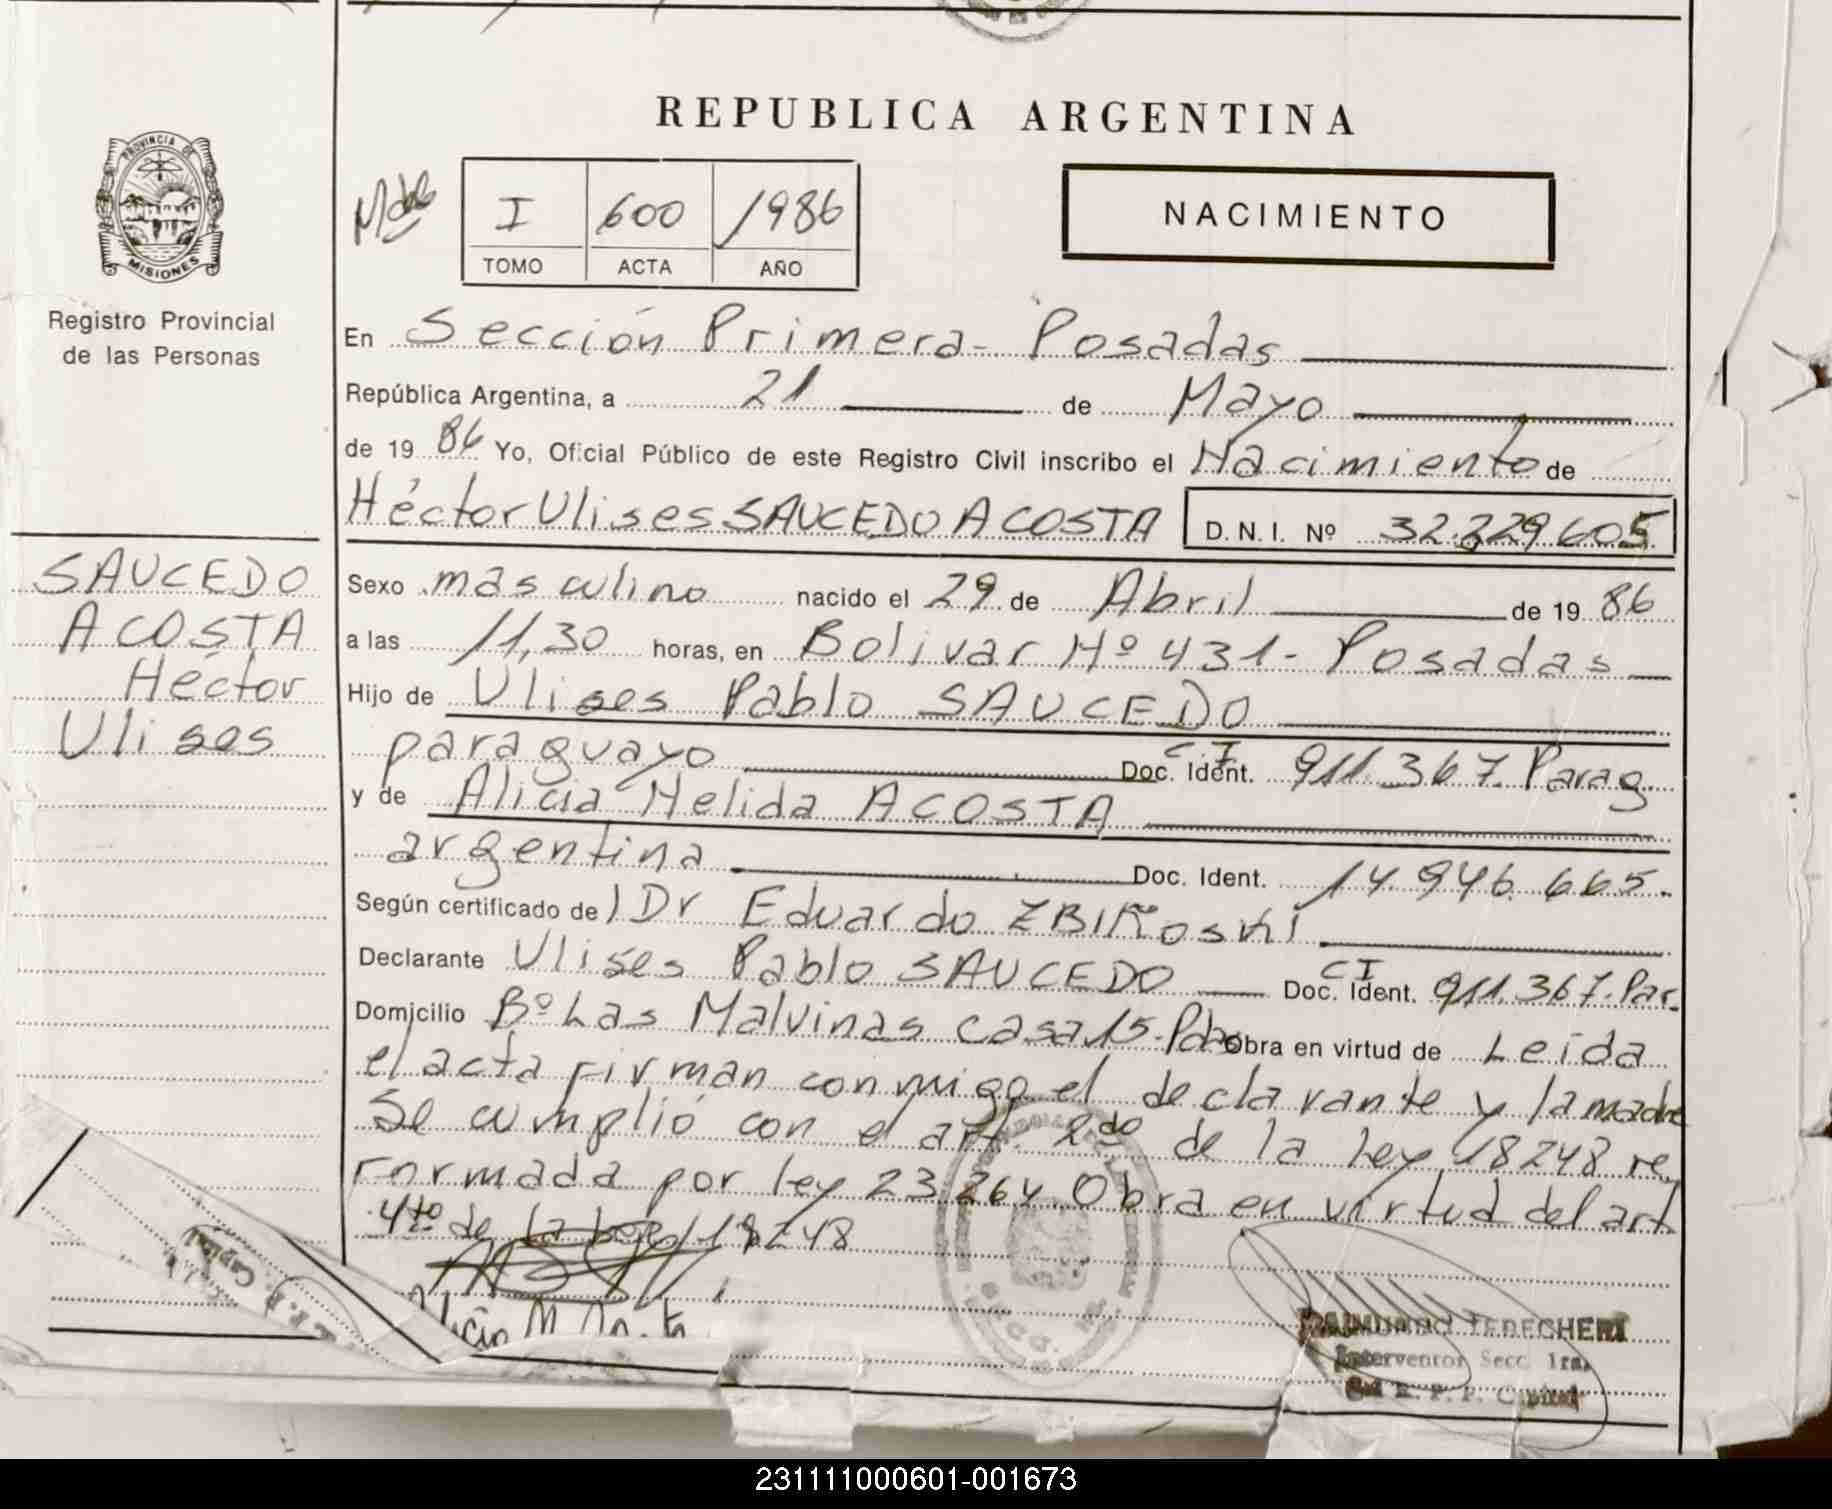 REPUBLICA ARGENTINA
PROVINCIA DE
MISIONES
Registro Provincial
de las Personas
I 600 1986
TOMO ACTA AÑO
NACIMIENTO
En Sección Primera - Posadas
República Argentina, a 21 de Mayo
de 19 86 Yo, Oficial Público de este Registro Civil inscribo el Nacimiento de
Héctor Ulises SAUCEDO ACOSTA D. N. I. Nº 32.229605
SAUCEDO
ACOSTA
Héctor
Ulises
Sexo masculino nacido el 29 de Abril de 19 86
a las 11,30 horas, en Bolivar Nº 431 - Posadas
Hijo de Ulises Pablo SAUCEDO
paraguayo C.I Doc. Ident. 911.367. Parag
y de Alicia Nelida ACOSTA
argentina Doc. Ident. 14.946.665.
Según certificado de Dr Eduardo
Declarante Ulises Pablo SAUCEDO CI Doc. Ident. 911.367. Par.
Domicilio Bº Las Malvinas casa 15-Pdas Obra en virtud de Leida
el acta firman conmigo el declarante y la madre
Se cumplió con el art. 2do de la Ley 18248 re
formada por ley 23264 Obra en virtud del art
4to de la Ley 18248
RAIMUNDO
Interventor Secc. 1ra.
R. P. P. Capital
231111000601-001673